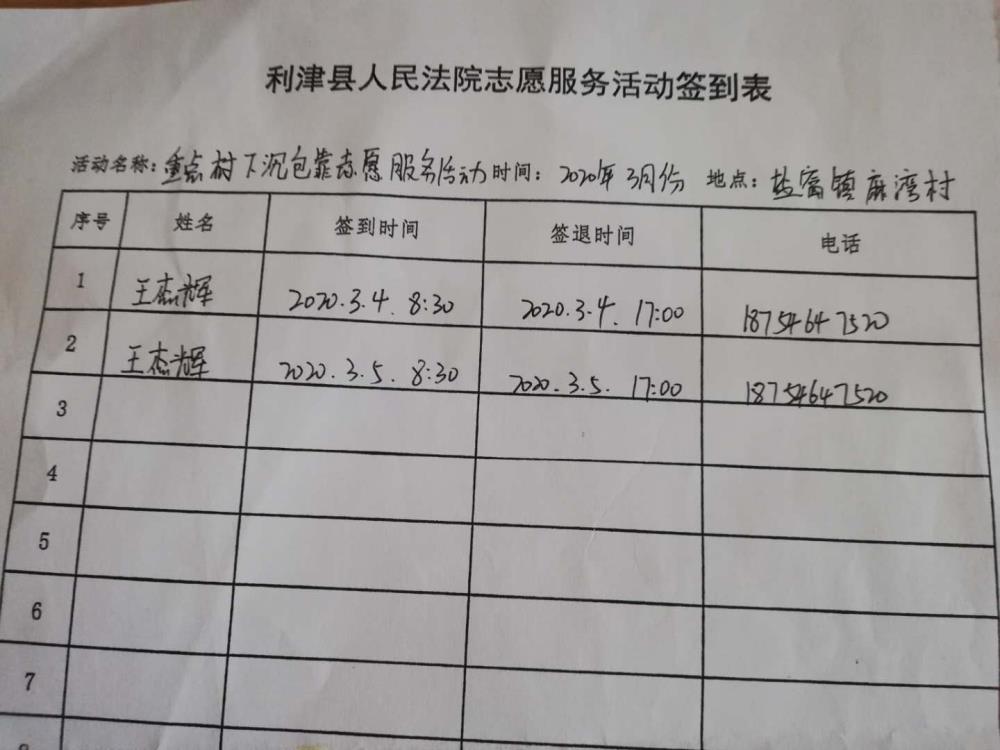 利津县人民法院志愿服务活动签到表
活动名称：重点村下沉包靠志愿服务活动 时间：2020年3月份 地点：盐窝镇麻湾村
序号 姓名 签到时间 签退时间 电话
1 王杰辉 2020.3.4. 8:30 2020.3.4. 17:00 18754647520
2 王杰辉 2020.3.5. 8:30 2020.3.5. 17:00 18754647520
3
4
5
6
7